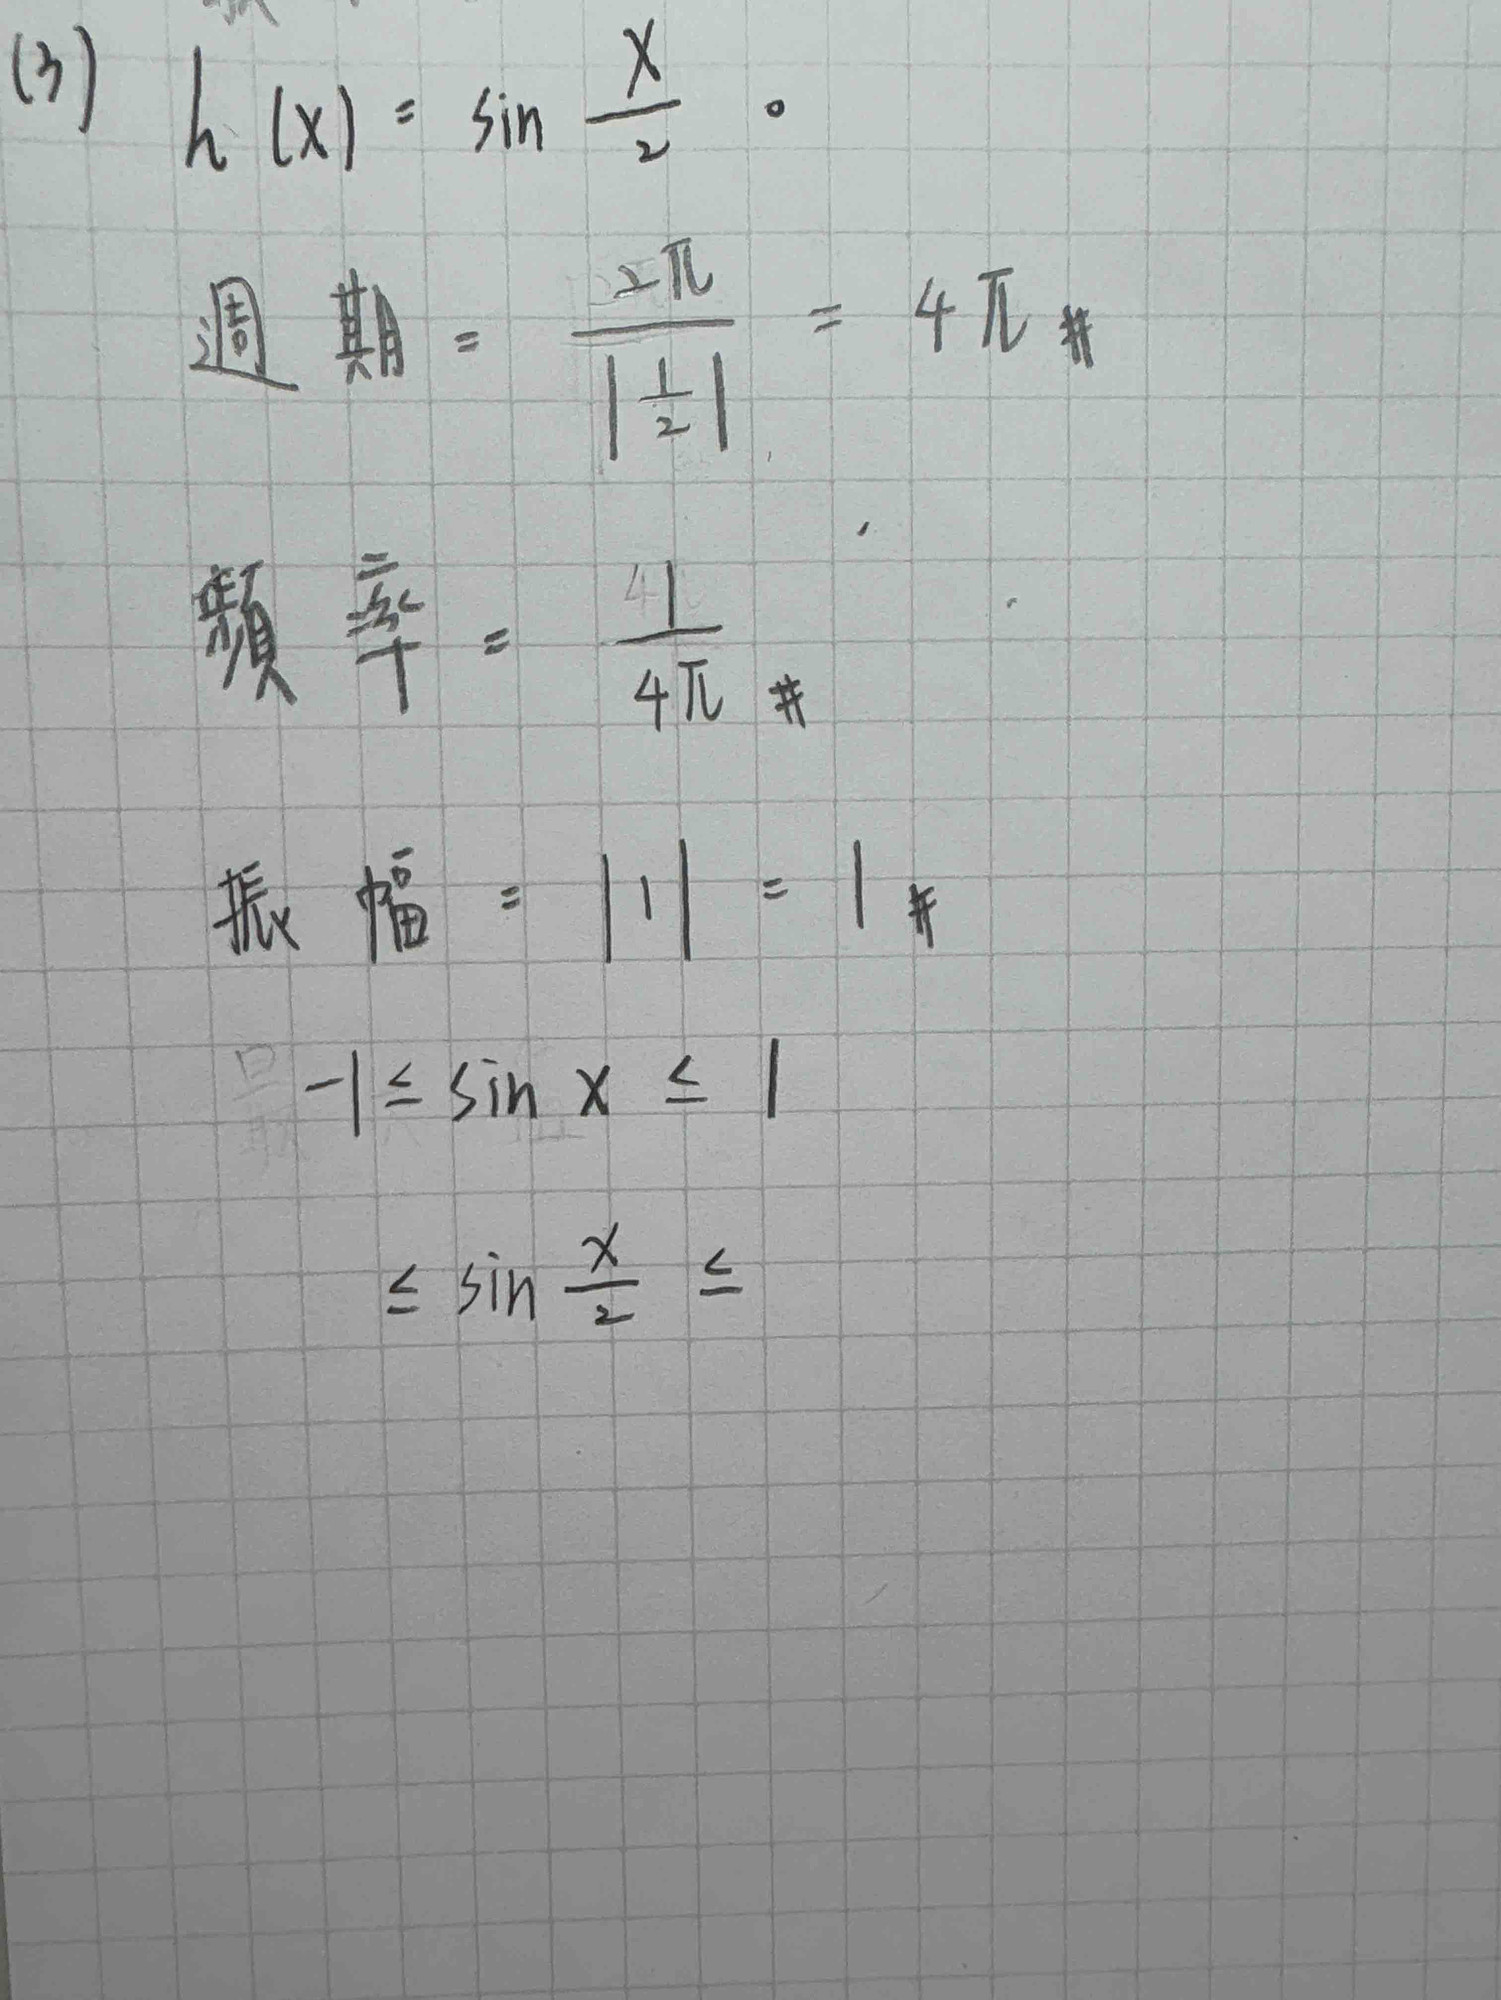 (3) h(x) = sin x/2 。
週期 = 2π/|1/2| = 4π #
頻率 = 1/4π #
振幅 = |1| = 1 #
-1 ≤ sin x ≤ 1
≤ sin x/2 ≤